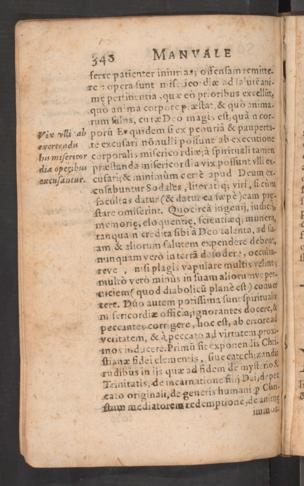 348 MANVALE
ferre patienter iniurias, offensam remitte-
re: opera sunt misericordiæ ad salutē ani-
mę pertinentia, quæ eo prioribus excellūt,
quo anima corpore præstat, & quò anima-
rum salus, cura Deo magis est, quā corporū
Et quidem si ex penuria & paupertate
excusari nonnulli possunt ab executione
corporalis misericordiæ, à spirituali tamen
præstanda misericordia vix possunt vlli ex-
cusari, & minimùm certè apud Deum ex-
cusabuntur Sodales, literati viri, si cum
facultas datur (& datur ea sæpè) eam prę-
stare omiserint. Quocirca ingenij, iudicij,
memoriæ, eloquentiæ, scientiæq; munera,
tanquam credita sibi à Deo talenta, ad su-
am & aliorum salutem expendere debent,
nunquam verò in terrā defodere, occulta-
reve, nisi plagis vapulare multis velint,
multò verò minus in suam aliorumve per-
niciem (quod diabolicū planè est) conver-
tere. Duo autem potissima sunt spiritualis
misericordiæ officia, ignorantes docere, &
peccantes corrigere, hoc est, ab errore ad
veritatem, & à peccato ad virtutem proxi-
mos inducere. Primū fit exponendis Chri-
stianæ fidei elementis, siue catechizandis
rudibus in ijs quæ ad fidem de mysterio SS.
Trinitatis, de incarnatione filij Dei, de pec-
cato originali, de generis humani p Chri-
stum mediatorem redemptione, de animę
immor-
Vix vlli ab
exercendis
misericor
diæ operibus
excusantur.